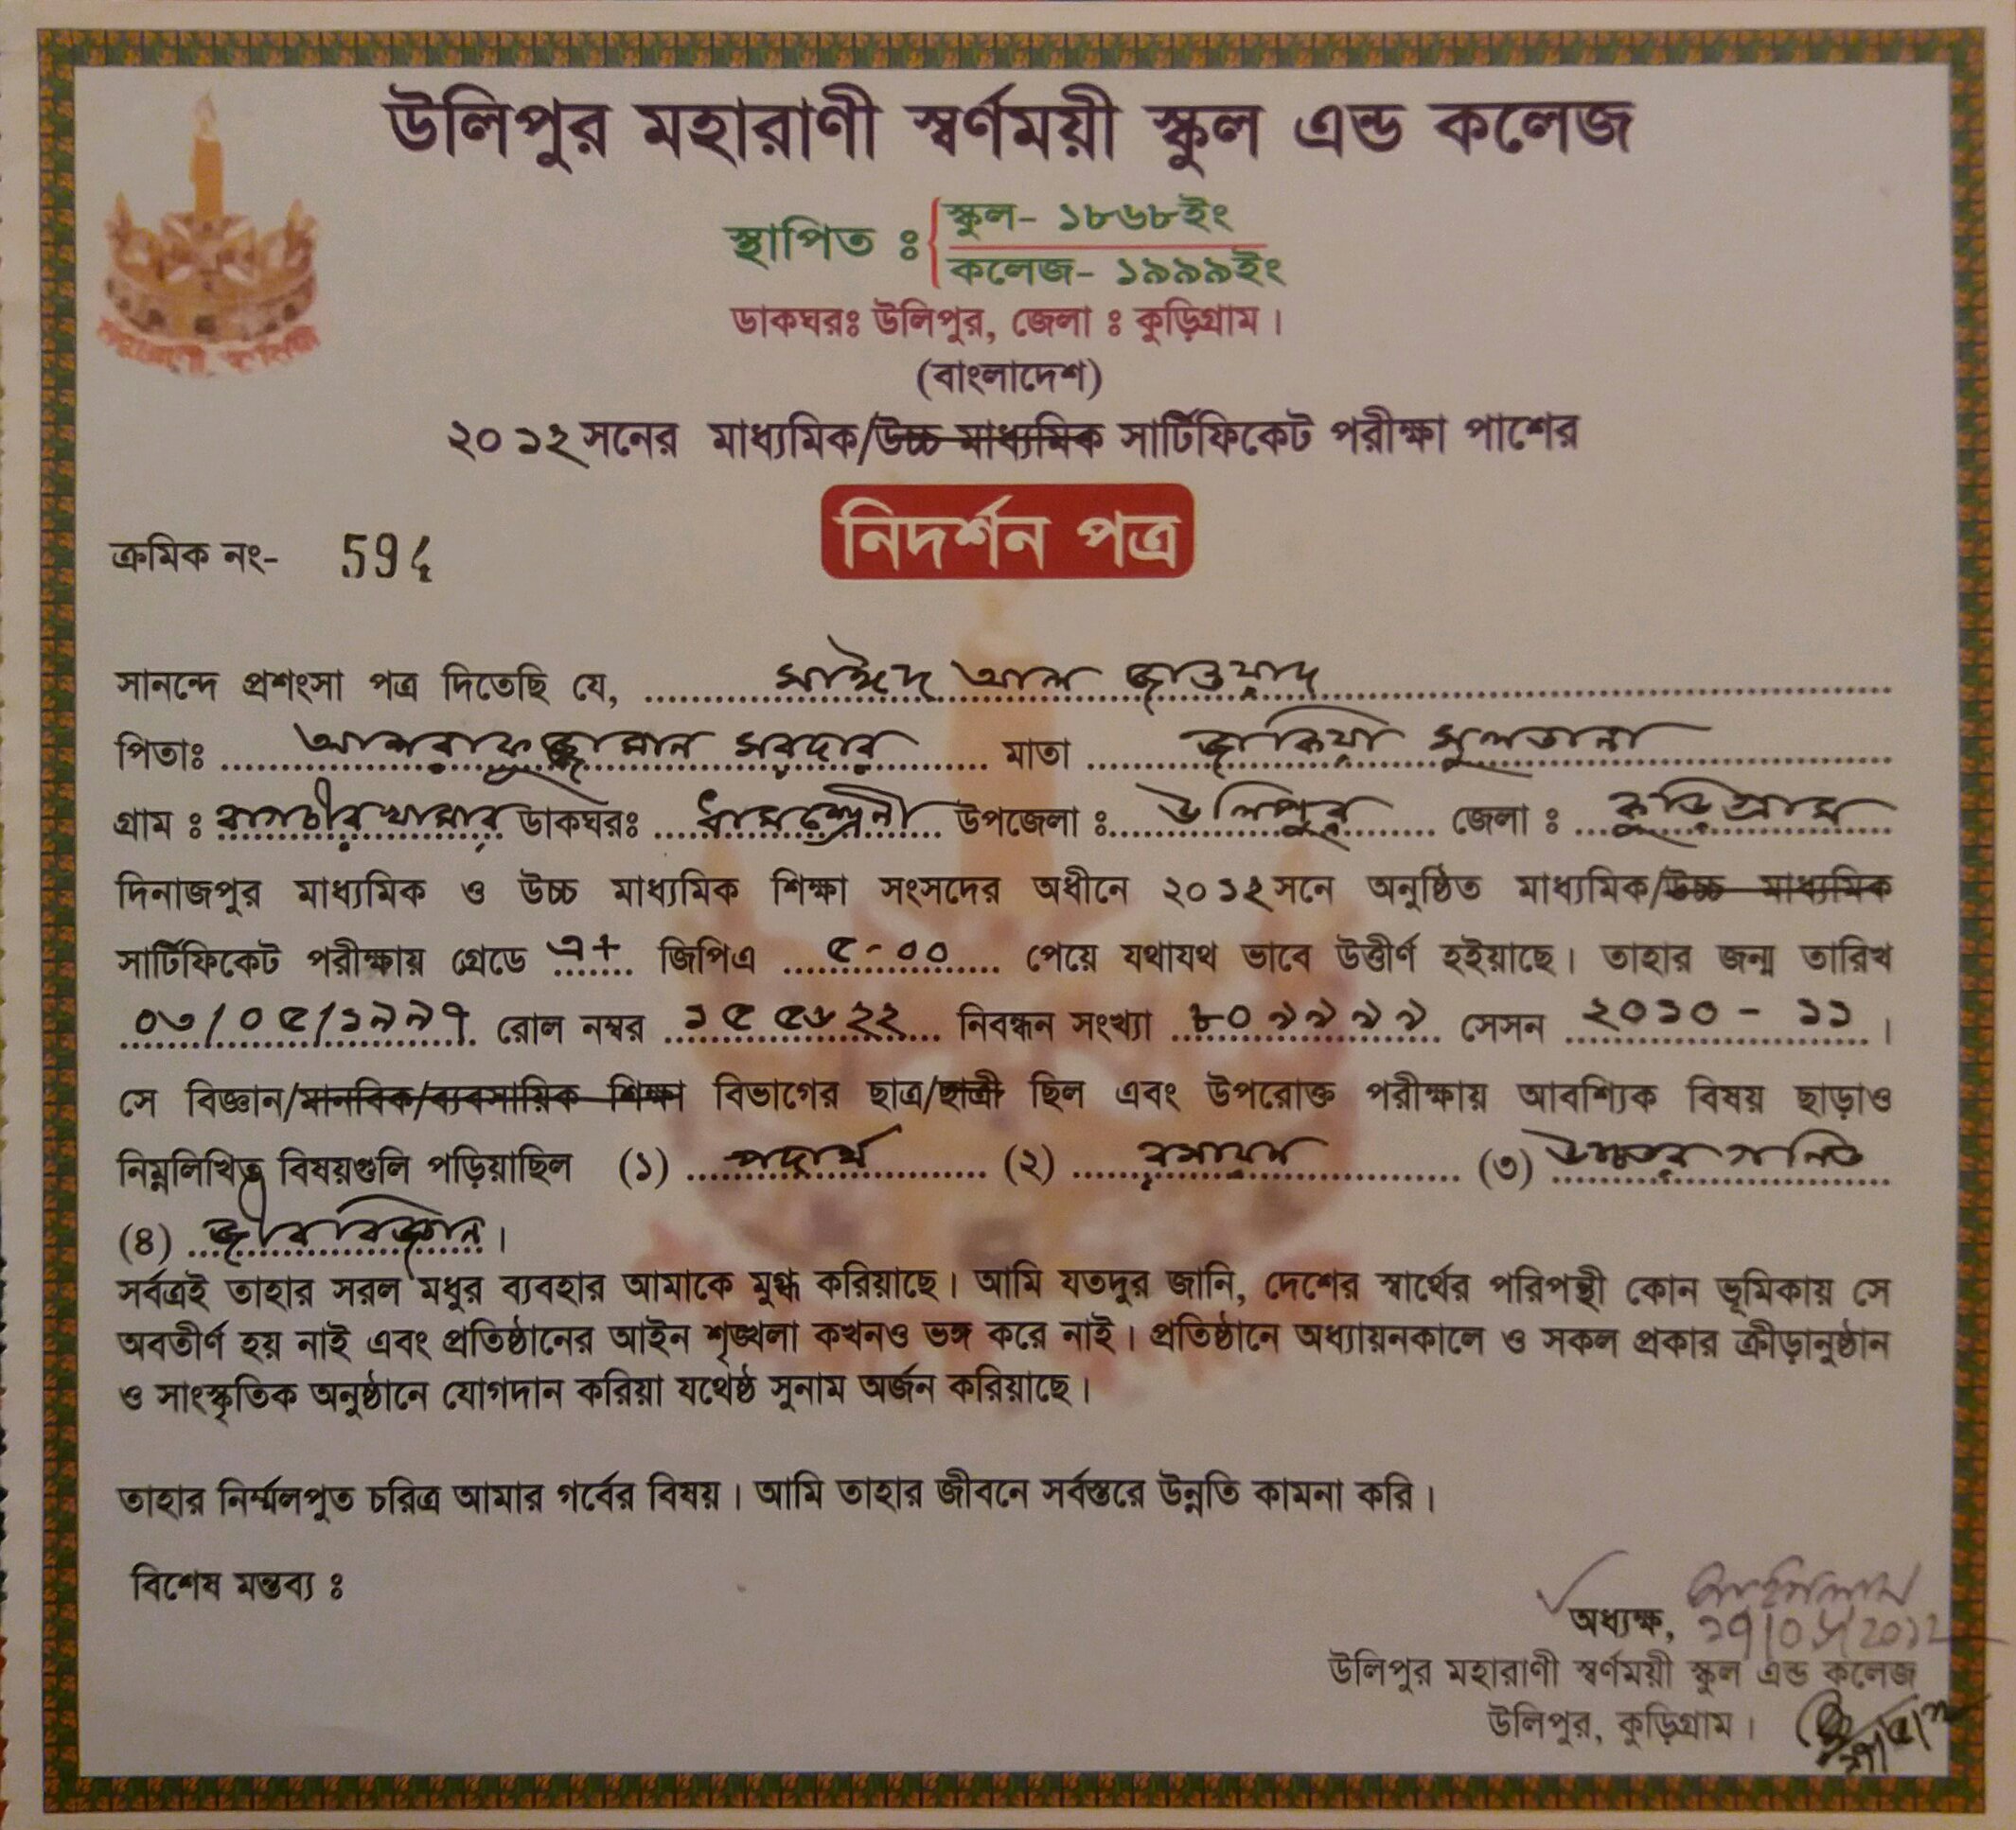 উলিপুর মহারাণী স্বর্ণময়ী স্কুল এন্ড কলেজ
স্থাপিত ঃ স্কুল- ১৮৬৮ইং
কলেজ- ১৯৯৯ইং
ডাকঘরঃ উলিপুর, জেলা ঃ কুড়িগ্রাম।
(বাংলাদেশ)
২০১২সনের মাধ্যমিক/উচ্চ মাধ্যমিক সার্টিফিকেট পরীক্ষা পাশের
নিদর্শন পত্র
ক্রমিক নং- 594
সানন্দে প্রশংসা পত্র দিতেছি যে, সাঈদ আল জাওয়াদ
পিতাঃ আশরাফুজ্জামান সরদার মাতা জাকিয়া সুলতানা
গ্রাম ঃ বাগচীর খামার ডাকঘরঃ ধামশ্রেনী উপজেলা ঃ উলিপুর জেলা ঃ কুড়িগ্রাম
দিনাজপুর মাধ্যমিক ও উচ্চ মাধ্যমিক শিক্ষা সংসদের অধীনে ২০১২সনে অনুষ্ঠিত মাধ্যমিক/উচ্চ মাধ্যমিক
সার্টিফিকেট পরীক্ষায় গ্রেডে এ+ জিপিএ ৫-০০ পেয়ে যথাযথ ভাবে উত্তীর্ণ হইয়াছে। তাহার জন্ম তারিখ
০৩/০৫/১৯৯৭ রোল নম্বর ১৫৫৬২২ নিবন্ধন সংখ্যা ৮০৯৯৯৯ সেসন ২০১০ - ১১ ।
সে বিজ্ঞান/মানবিক/ব্যবসায়িক শিক্ষা বিভাগের ছাত্র/ছাত্রী ছিল এবং উপরোক্ত পরীক্ষায় আবশ্যিক বিষয় ছাড়াও
নিম্নলিখিত বিষয়গুলি পড়িয়াছিল (১) পদার্থ (২) রসায়ন (৩) উচ্চতর গনিত
(৪) জীব বিজ্ঞান ।
সর্বত্রই তাহার সরল মধুর ব্যবহার আমাকে মুগ্ধ করিয়াছে। আমি যতদুর জানি, দেশের স্বার্থের পরিপন্থী কোন ভূমিকায় সে
অবতীর্ণ হয় নাই এবং প্রতিষ্ঠানের আইন শৃঙ্খলা কখনও ভঙ্গ করে নাই। প্রতিষ্ঠানে অধ্যায়নকালে ও সকল প্রকার ক্রীড়ানুষ্ঠান
ও সাংস্কৃতিক অনুষ্ঠানে যোগদান করিয়া যথেষ্ঠ সুনাম অর্জন করিয়াছে।
তাহার নির্ম্মলপুত চরিত্র আমার গর্বের বিষয়। আমি তাহার জীবনে সর্বস্তরে উন্নতি কামনা করি।
বিশেষ মন্তব্য ঃ
অধ্যক্ষ,
উলিপুর মহারাণী স্বর্ণময়ী স্কুল এন্ড কলেজ
উলিপুর, কুড়িগ্রাম।